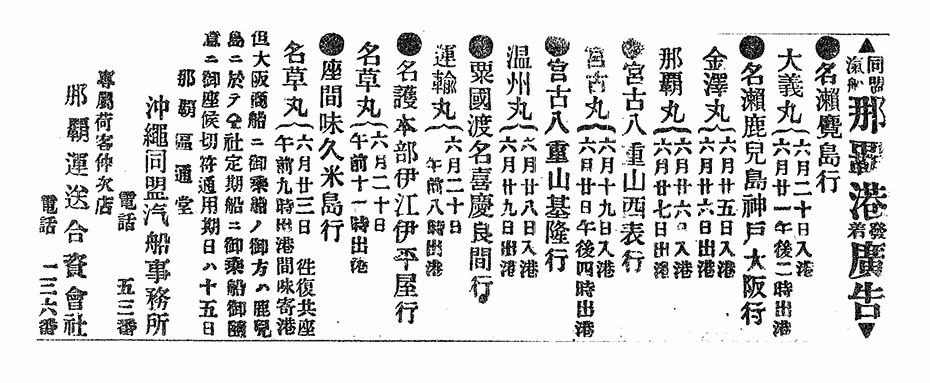 ▲同盟汽船那覇港發着廣告▼
●名瀨鹿兒島行
大義丸 六月二十日入港
六月廿一日午後二時出港
●名瀨鹿兒島神戸大阪行
金澤丸 六月廿五日入港
六月廿六日出港
那覇丸 六月廿六日入港
六月廿七日出港
●宮古八重山西表行
宮古丸 六月十九日入港
六月廿日午後四時出港
●宮古八重山基隆行
温州丸 六月廿八日入港
六月廿九日出港
●粟國渡名喜慶良間行
運輸丸 六月二十日
午前八時出港
●名護本部伊江伊平屋行
名草丸 六月二十日
午前十一時出港
●座間味久米島行
名草丸 六月廿三日 往復共座
午前九時出港間味寄港
但大阪商船ニ御乘船ノ御方ハ鹿兒
島ニ於テ仝社定期船ニ御乘船御隨
意ニ御座候切符通用期日ハ十五日
那覇區通堂
沖繩同盟汽船事務所
電話 五三番
專屬荷客仲次店
那覇運送合資會社
電話 一二六番